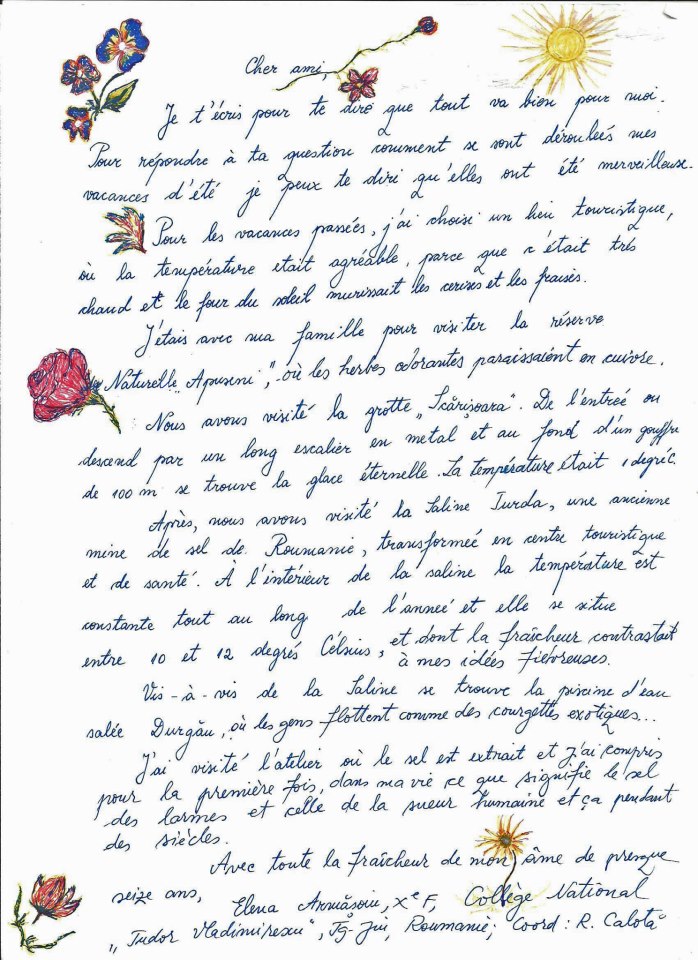 Cher ami,
Je t'écris pour te dire que tout va bien pour moi.
Pour répondre à ta question comment se sont dérouleés mes
vacances d'été je peux te diri qu'elles ont été merveilleuse.
Pour les vacances passées, j'ai choisi un lieu touristique,
où la température etait agréable, parce que c'était trés
chaud et le four du soleil murissait les cerises et les fraises.
J'étais avec ma famille pour visiter la réserve
Naturelle „Apuseni", où les herbes odorantes paraissaient en cuivre.
Nous avons visité la grotte „Scărişoara". De l'entreé on
descend par un long escalier en metal et au fond d'un gouffre
de 100 m se trouve la glace éternelle. La température était 1 degréC.
Après, nous avons visité la Saline Turda, une ancienne
mine de sel de Roumanie, transformeé en centre touristique
et de santé. À l'intérieur de la saline la température est
constante tout au long de l'anneé et elle se situe
entre 10 et 12 degrés Célsius, et dont la fraîcheur contrastait
à mes idées fiévreuses.
Vis-à-vis de la Saline se trouve la piscine d'eau
salée Durgău, où les gens flottent comme des courgettes exotiques...
J'ai visité l'atelier où le sel est extrait et j'ai compris
pour la première fois, dans ma vie ce que signifie le sel
des larmes et celle de la sueur humaine et ça pendant
des siècles.
Avec toute la fraîcheur de mon âme de presque
seize ans, Elena Armăşoiu, Xe F, Collège National
„Tudor Vladimirescu", Tg-Jiu, Roumanie; Coord: R. Calotă